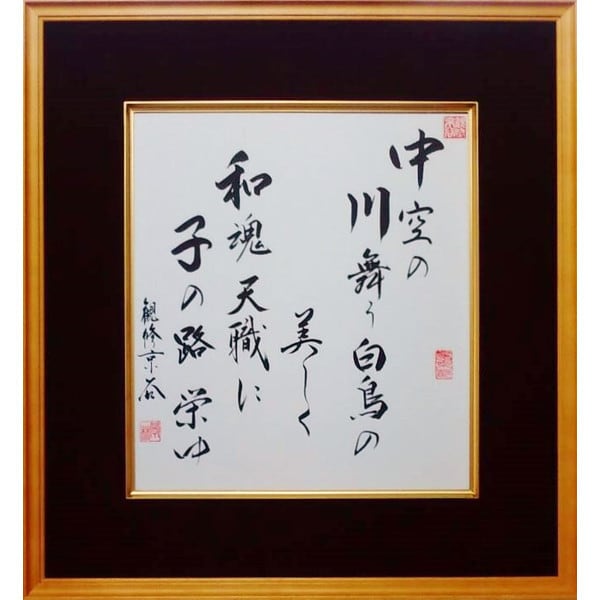 中空の
川舞う白鳥の
美しく
和魂天職に
子の路栄ゆ
観修京谷